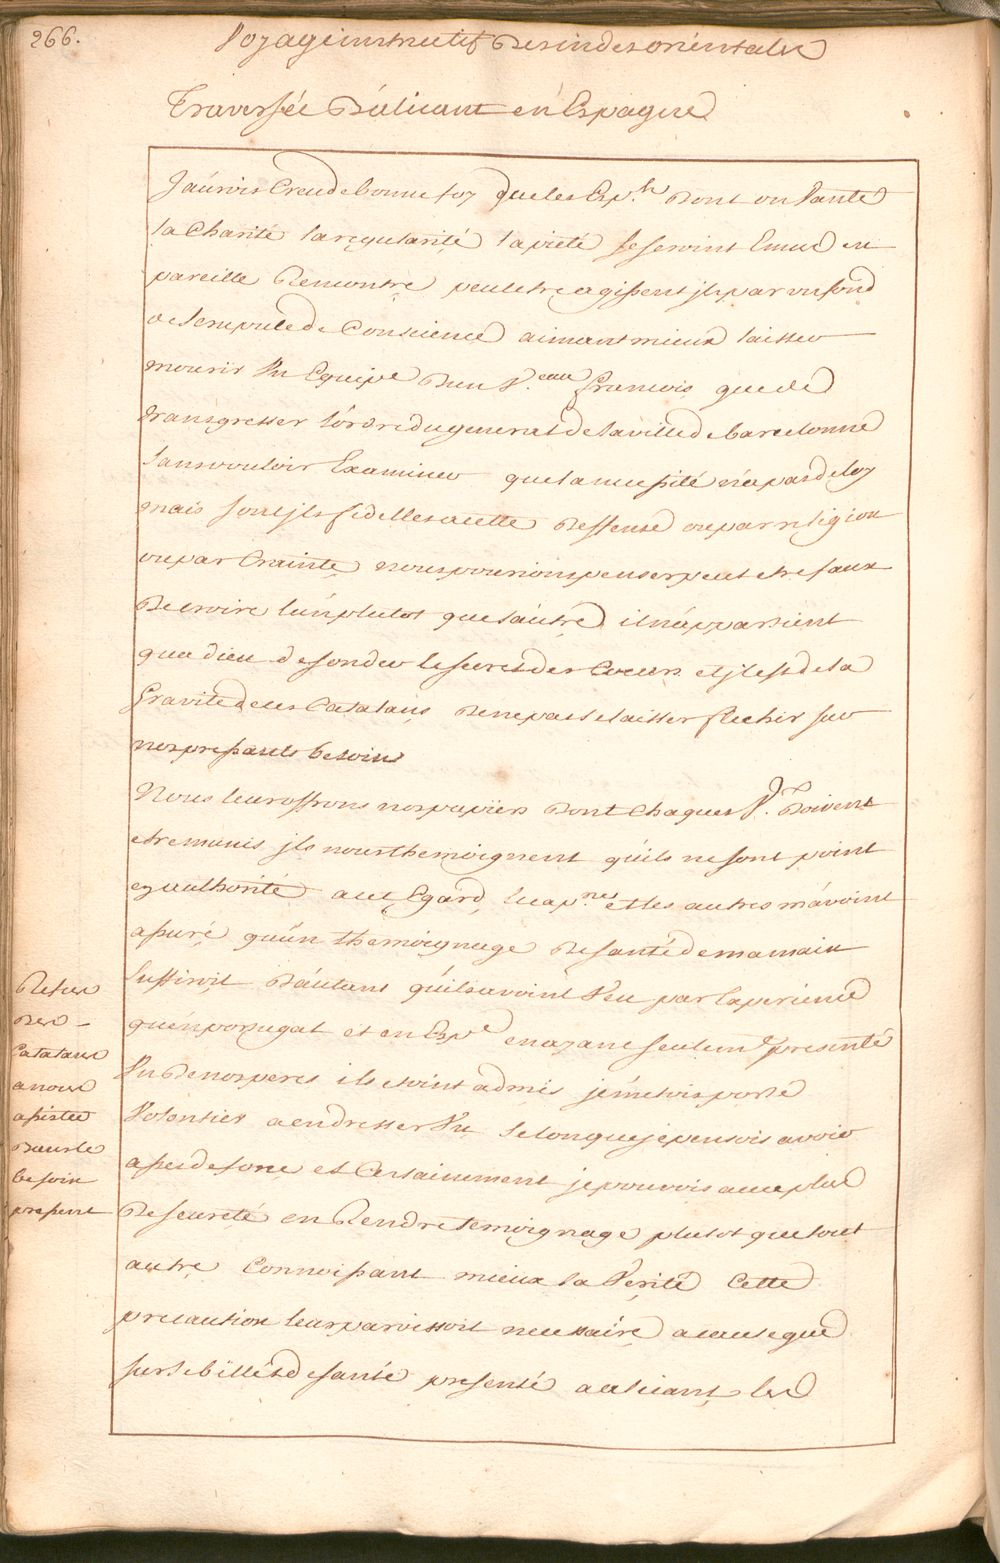 266.
Voyage instructif Des indes orientales
Traversée D'alicant en Espagne
J'aurois Creu de bonne foy que les Esp.ls Dont on Vante
la Charité la regularité la pieté se seroint Emus en
pareille Rencontre peutetre agissent jls par un fond
de scrupule de Conscience aimant mieux laisser
mourir Un Equipe D'un V.eau francois que de
transgresser l'ordre du general de la ville de barcelonne
sans vouloir Examiner que la necessité n'a pas de loy
mais sont jls fidelles a cette Deffense ou par religion
ou par Crainte nous pourions penser peut etre faux
De croire l'un plutot que l'autre il n'appartient
qua dieu de sonder le secret des Coeurs et jl est de la
Gravité de ces Catalans De ne pas se laisser flechir sur
nos pressants besoins
Nous leur offrons nos papiers Dont Chaques V. Doivent
etre munis jls nous themoignent qu'ils ne font point
eyauthorité a cet Egard, les cap.nes et les autres m'avoint
assuré qu'un themoignage De santé de ma main
suffiroit D'autant qu'ils avoint Veu par Experience
qu'en portugal et en Esp.e en ayant seulem.t presenté
Un De nos peres ils etoint admis je m'etois porté
Volontier a en dresser Un selon que je pensois avoir
assés de force et Certainement je pouvois avec plus
De seureté en Rendre temoignage plutot que tout
autre Connoissant mieux la Verité Cette
precaution leur paroissoit necessaire a cause que
sur le billet de santé presenté a alicant les
Refus
Des
Catalans
a nous
assister
Dans le
besoin
pressent